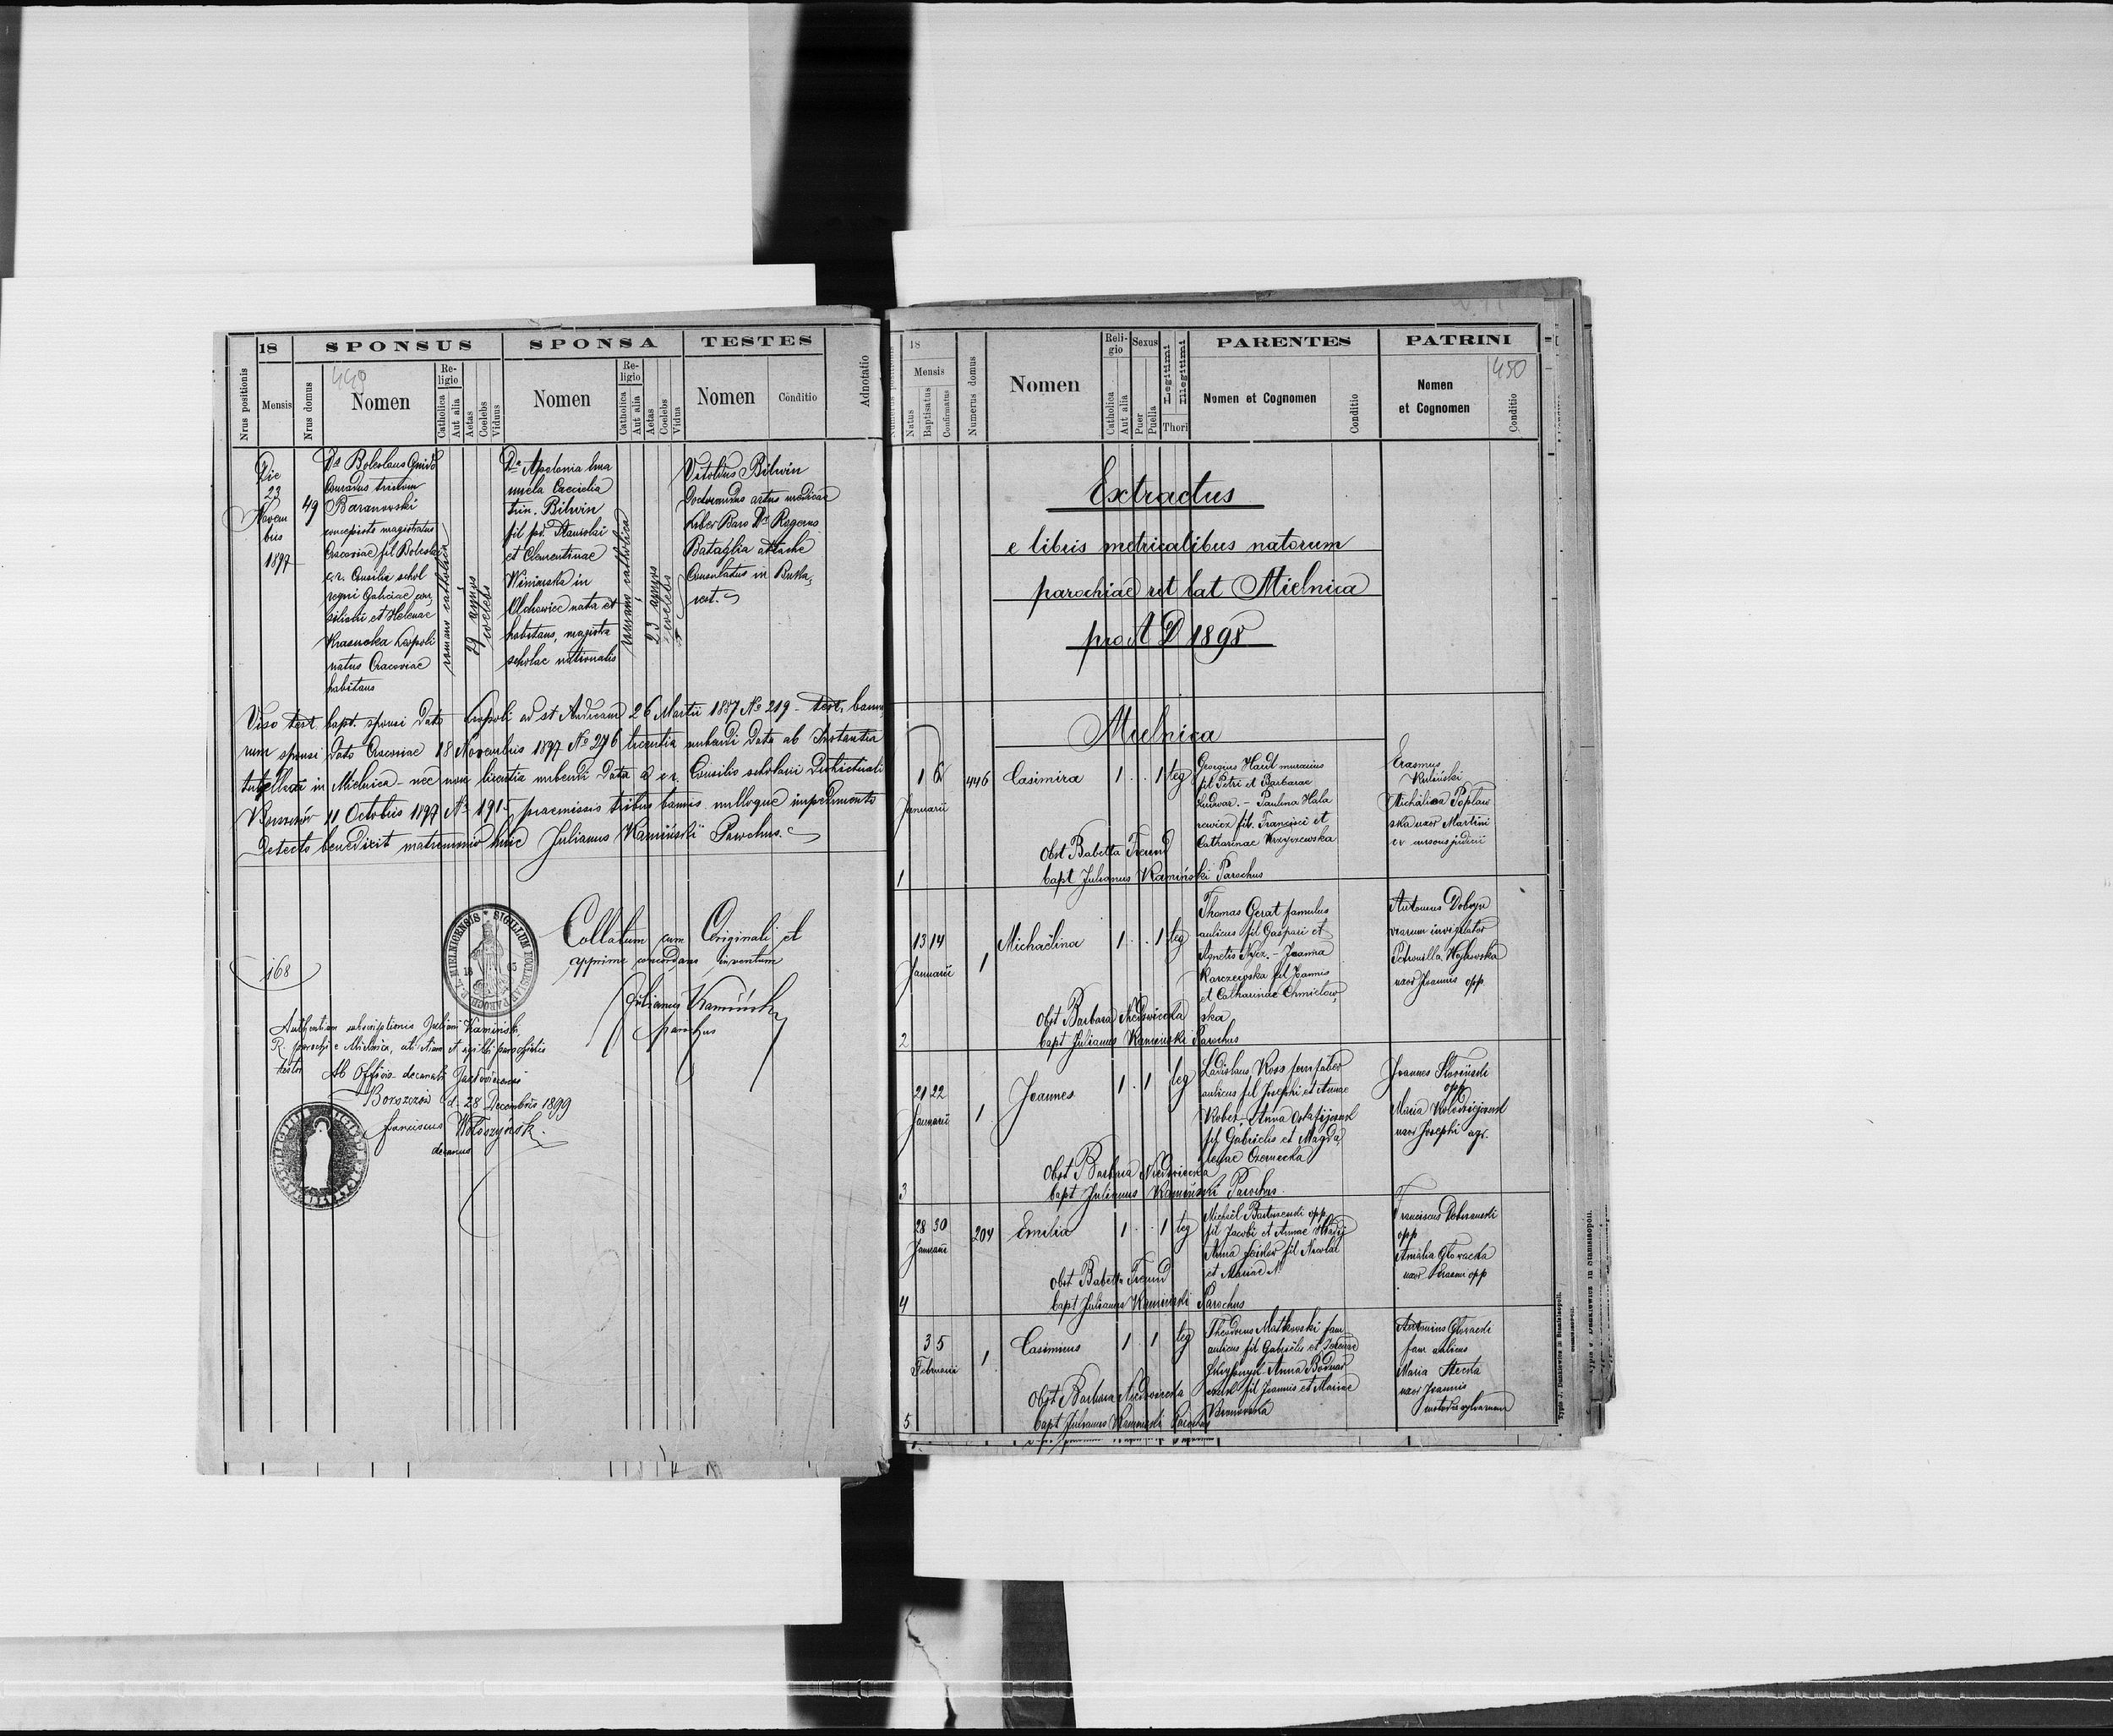 18
SPONSUS
SPONSA
TESTES
Adnotatio
Nrus positionis
Mensis
Nrus domus
449
Nomen
Religio
Catholica
Aut alia
Aetas
Coelebs
Viduus
Nomen
Religio
Catholica
Aut alia
Aetas
Coelebs
Vidua
Nomen
Conditio
Die
23
Novem
bris
1897
49
Ds Boleslaus Guido
Conradus trinom
Baranowski
concepista magistratus
Cracoviae fil Boleslai
c.r. Consilii schol
regni Galiciae con
siliarii et Helenae
Krasucka Leopoli
natus Cracoviae
habitans
romano catholica
29 annos
coelebs
Da Apolonia Ema
nuela Caecilia
trin. Bilwin
fil pd. Stanislai
et Clementinae
Winiarska in
Olchowiec nata et
habitans, magistra
scholae nationalis
romano catholica
23 annos
coelebs
Vitoldus Bilwin
Doctorandus artis medicae
Liber Baro Ds Rogerus
Bataglia attache
Consulatus in Buka
rest.
Viso test. bapt. sponsi dato Leopoli ad st Andream 26 Martii 1887 No 219 - test. banno
rum sponsi dato Cracoviae 18 Novembris 1897 No 276 licentia nubendi data ab Instantia
tutellari in Mielnica - nec non licentia nubendi data a c.r. Consilio scholari Districtuali
Borszczów 11 Octobris 1897 No 191 - praemissis tribus bannis nulloque impedimento
detecto benedixit matrimonio huic Julianus Kamiński Parochus.
168
MIELNICENSIS * SIGILLUM ECCLESIAE PAROCH.
Collatum cum Originali et
apprime concordans inventum
Julianus Kamiński
parochus
Authentiam subscriptionis Juliani Kamiński
R. parochi e Mielnica, uti etiam et sigilli parochialis
testor
Ab Officio decanali
Borszczów d. 28 Decembris 1899
Franciscus Wołoszyński
decanus
Numerus positionis
18
Mensis
Natus
Baptisatus
Confirmatus
Numerus domus
Nomen
Religio
Catholica
Aut alia
Sexus
Puer
Puella
Legitimi
Illegitimi
Thori
PARENTES
Nomen et Cognomen
Conditio
PATRINI
Nomen
et Cognomen
Conditio
450
Extractus
e libris metricalibus natorum
parochiae rit lat Mielnica
pro A D 1898
Mielnica
1 6
Januarii
446
Casimira
1 . . 1 leg
Georgius Haul murarius
fil Petri et Barbarae
Ludwar. - Paulina Hala
rewicz fil. Francisci et
Catharinae Krzyżewska
Erasmus
Kuliński
Michalina Popław
ska uxor Martini
cr cursoris judicii
Obst Babetta Freund
bapt Julianus Kamiński Parochus
1
13 14
Januarii
1
Michaëlina
1 . . 1 leg
Thomas Gerat famulus
aulicus fil Gaspari et
Agnetis Nycz. - Joanna
Karczewska fil Joannis
et Catharinae Chmielow
ska
Antonius Dobrga
viarum invigilator
Petronilla Hojlawska
uxor Joannis opp.
Obst Barbara Niedźwiecka
bapt Julianus Kamiński Parochus
2
21 22
Januarii
1
Joannes
1 . 1 leg
Ladislaus Koss ferrifaber
aulicus fil Josephi et Annae
Kober. - Anna Ostafijczuk
fil Gabrielis et Magda
lenae Czernecka
Joannes Słowiński
opp
Maria Kołodziejczuk
uxor Josephi agr.
Obst Barbara Niedźwiecka
bapt Julianus Kamiński Parochus
3
28 30
Januarii
204
Emilia
1 . . 1 leg
Michaël Bartoszewski opp.
fil Jacobi et Annae
Anna fil Nicolai
et Mariae N.
Franciscus Dobrzanski
opp
Amalia Głowacka
uxor Erasmi opp
Obst Babetta Freund
bapt Julianus Kamiński Parochus
4
3 5
Februarii
1
Casimirus
1 . 1 leg
Theodorus Matkowski fam
aulicus fil Gabrielis et
Anna Bodnar
czuk fil Joannis et Mariae
Bronowska
Antonius Głowacki
fam aulicus
Maria Stecka
uxor Joannis
custodis sylvarum
Obst Barbara Niedźwiecka
bapt Julianus Kamiński Parochus
5
Typis J. Dankiewicz in Stanislaopoli.